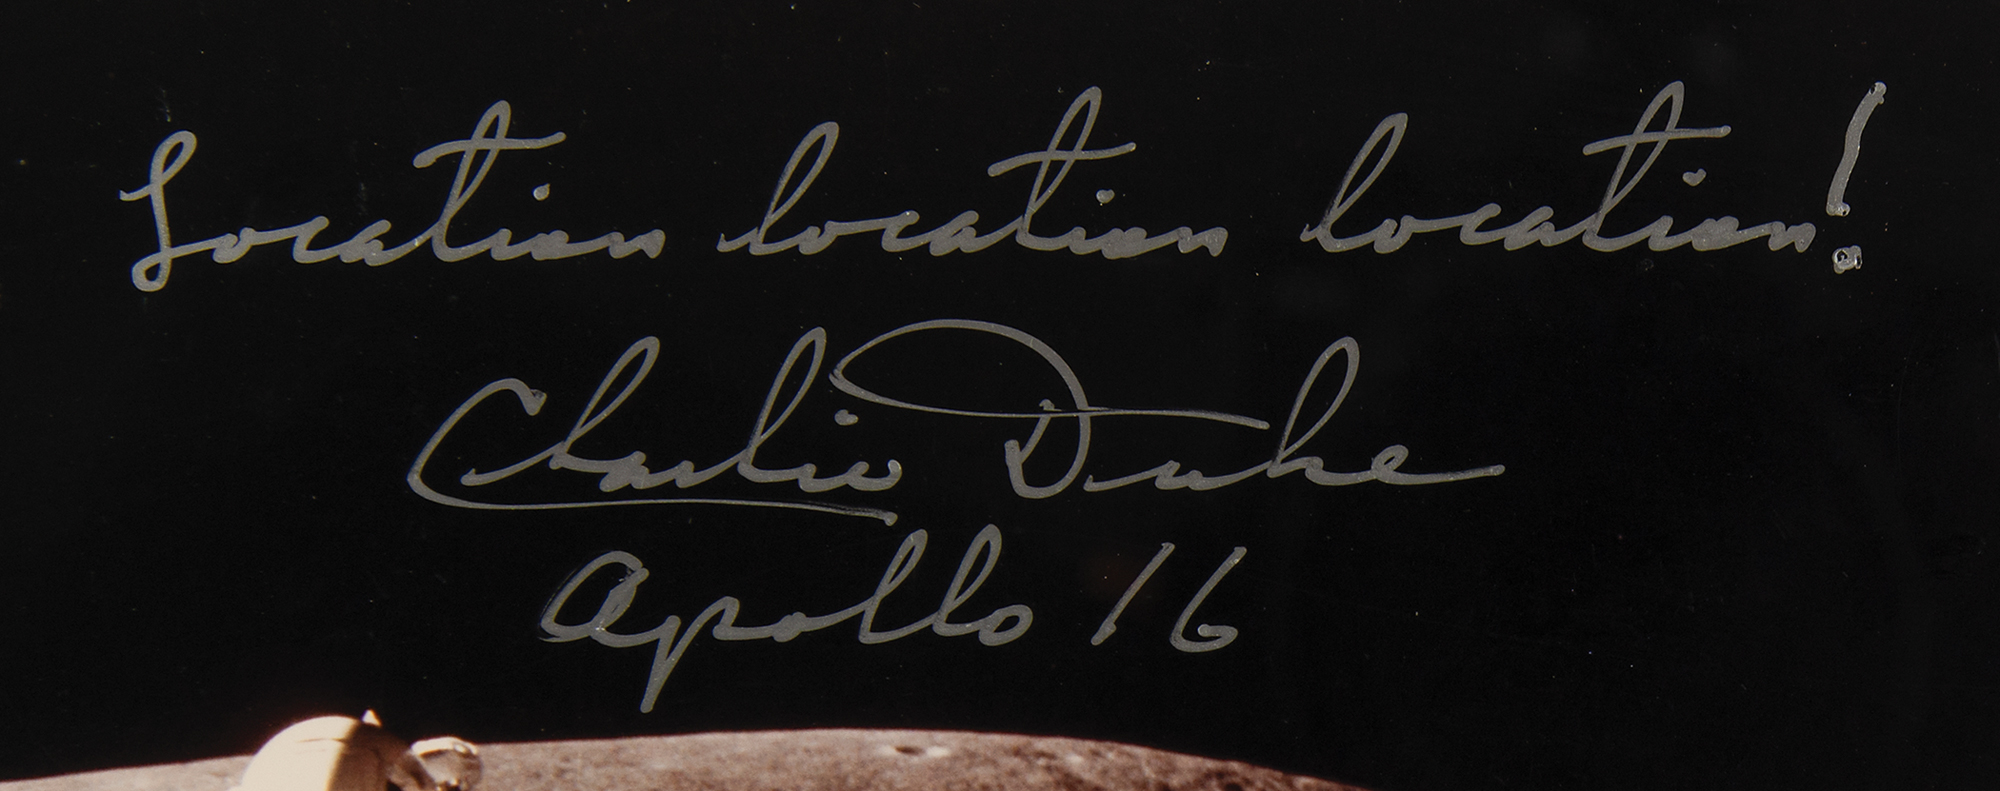 Location location location!
Charlie Duke
Apollo 16